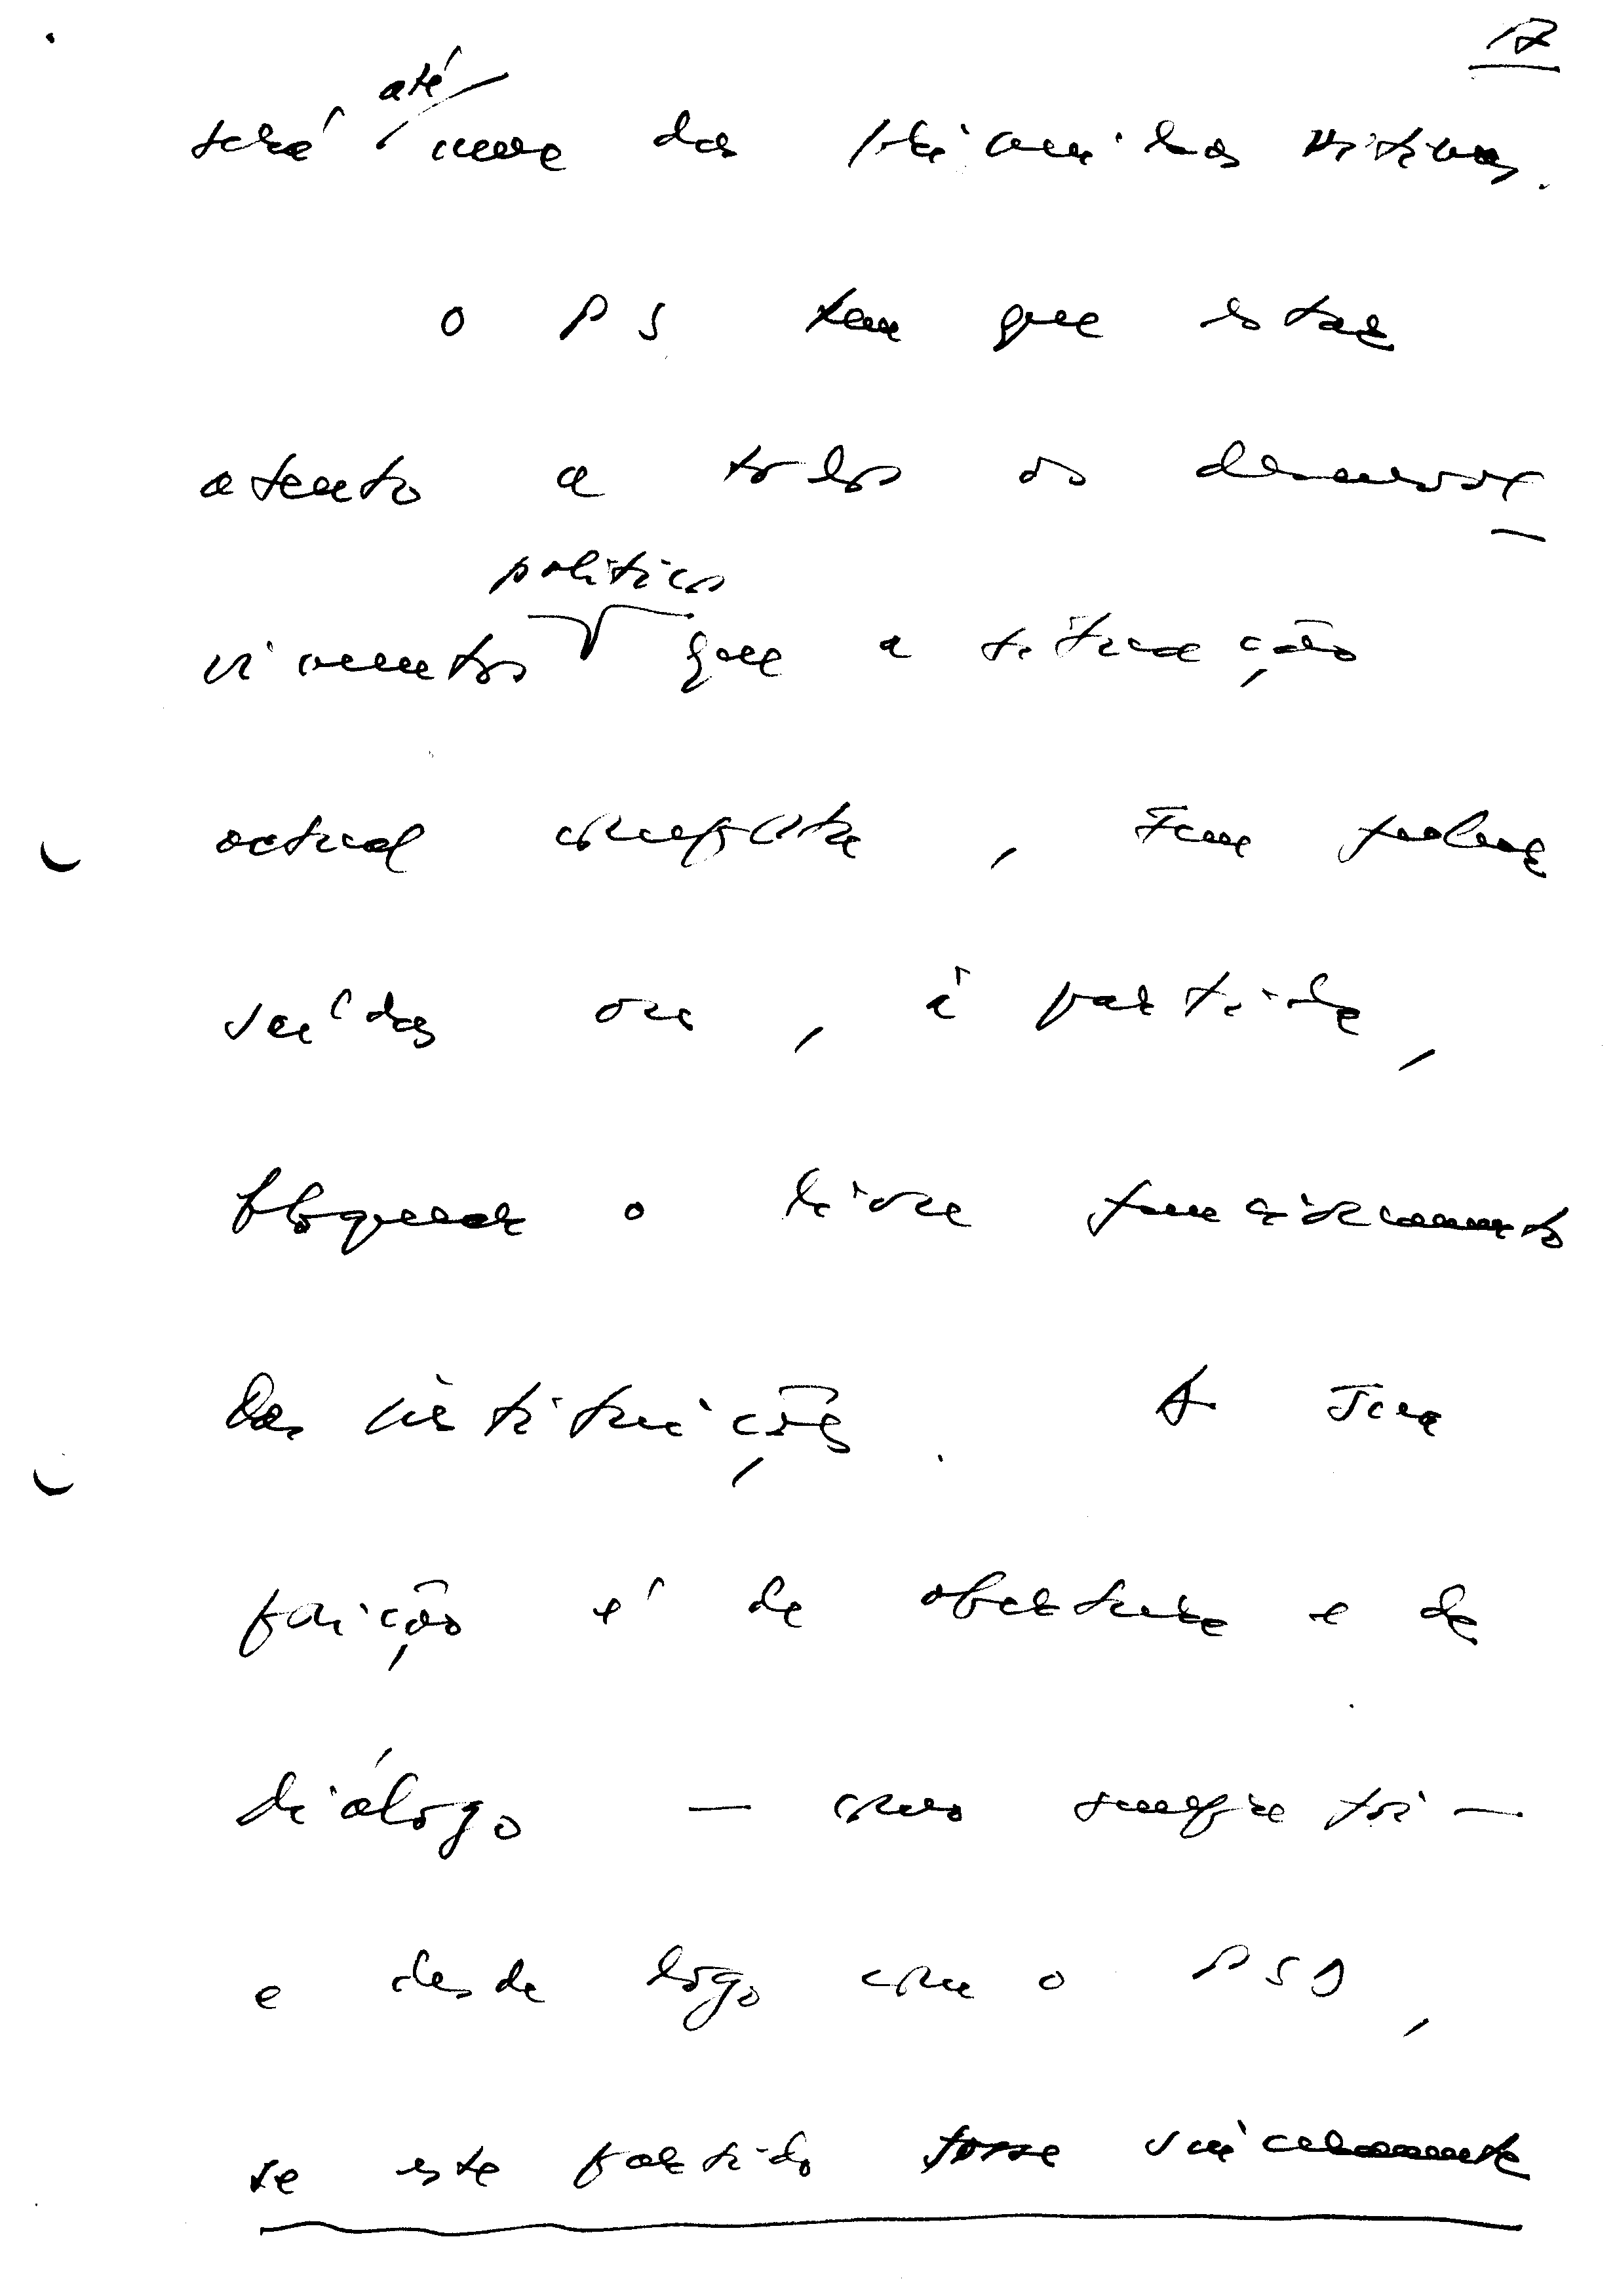 17
até
será uma das primeiras vítimas.
O PS tem que estar
atento a todos os desenvol-
políticos
vimentos que a situação
actual comporta, sem fechar
saídas ou, à partida,
bloquear o livre funcionamento
das instituições. A sua
posição é de abertura e de
diálogo — como sempre foi —
e desde logo com o PSD,
se este partido fosse